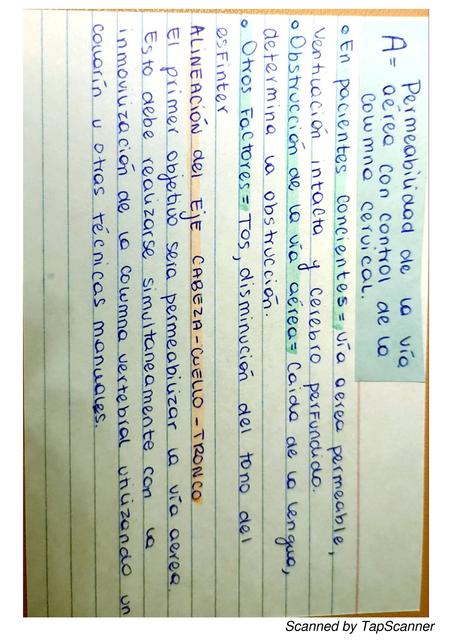 A= Permeabilidad de la vía
aérea con control de la
columna cervical.
• En pacientes concientes= vía aerea permeable,
ventilación intacta y cerebro perfundido.
• Obstrucción de la vía aérea= Caída de la lengua,
determina la obstrucción.
• Otros Factores= Tos, disminución del tono del
esfinter
ALINEACIÓN del EJE CABEZA-CUELLO-TRONCO
El primer objetivo sera permeabilizar la vía aerea.
Esto debe realizarse simultaneamente con la
inmovilización de la columna vertebral utilizando un
collarín u otras técnicas manuales.
Scanned by TapScanner